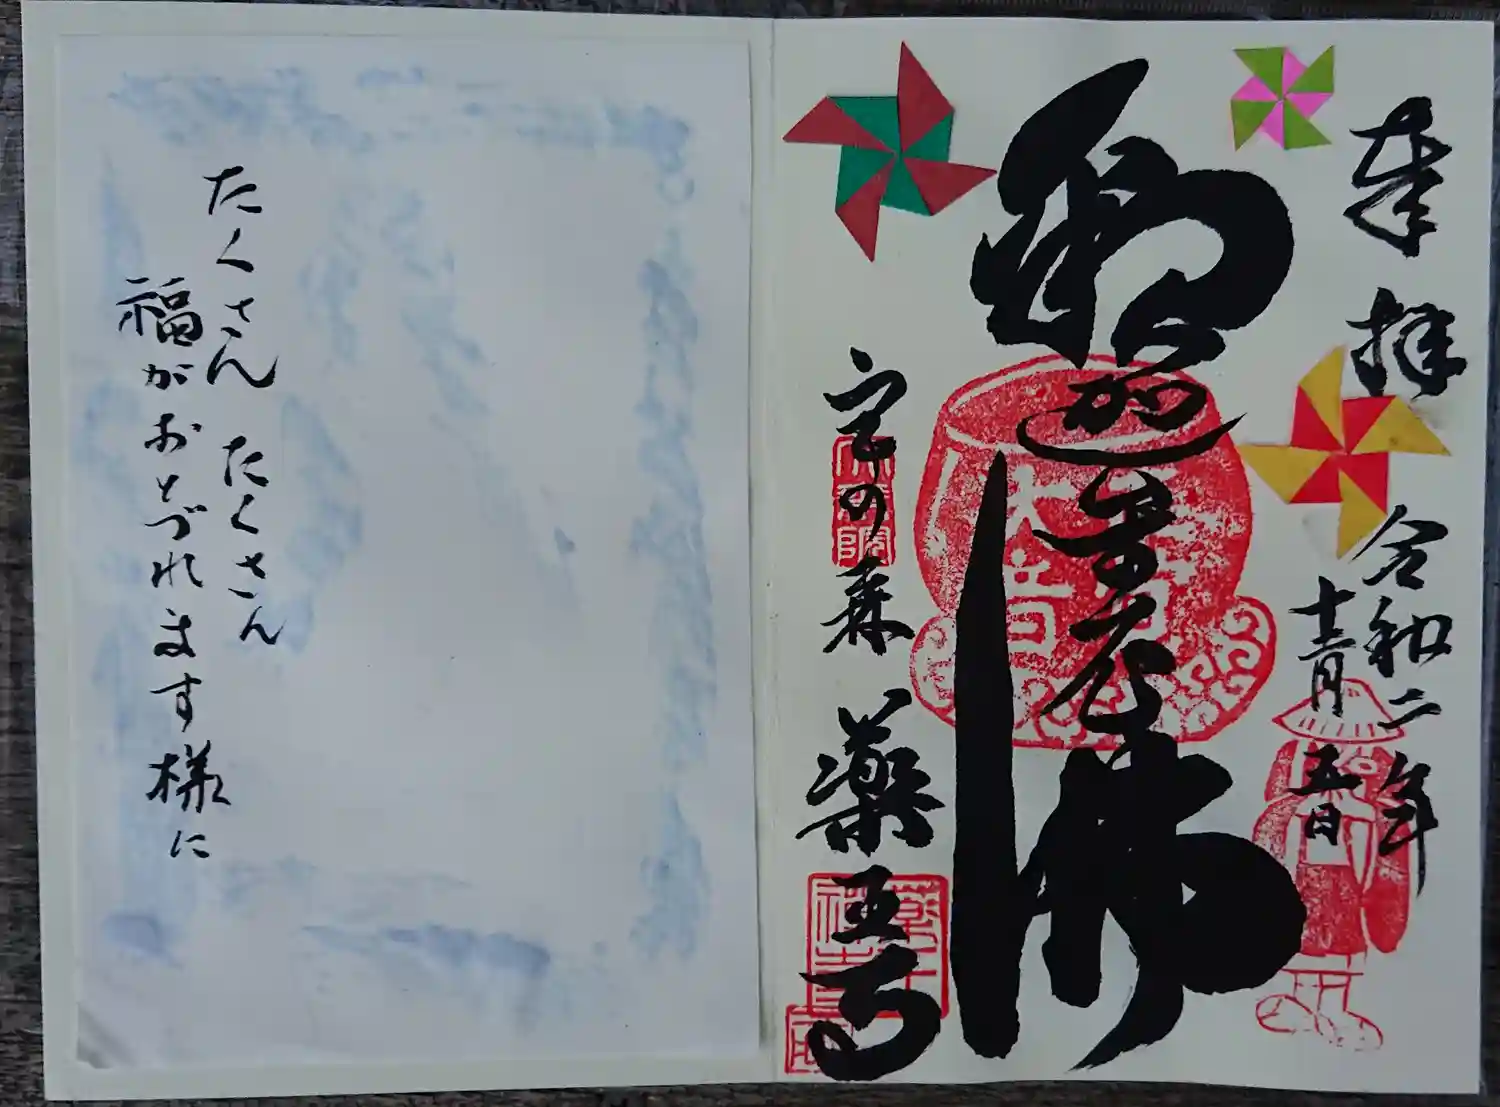 奉拝
令和二年
十二月五日
釈迦牟尼佛
宝の森 薬王寺
たくさん たくさん
福がおとづれます様に